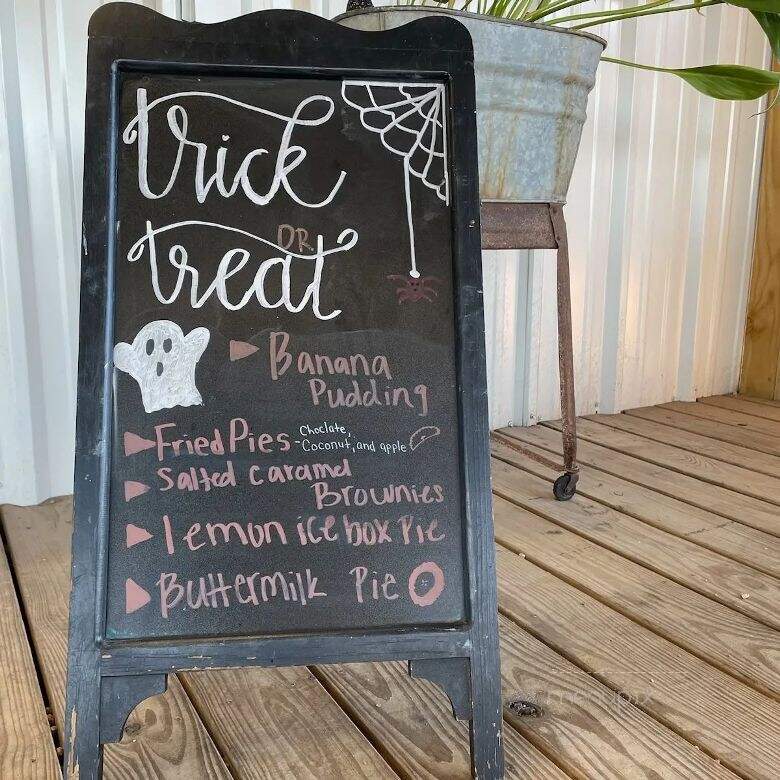 trick
OR
treat
Banana
Pudding
Fried Pies - Choclate,
Coconut, and apple
Salted caramel
Brownies
lemon ice box Pie
Buttermilk Pie
menupix